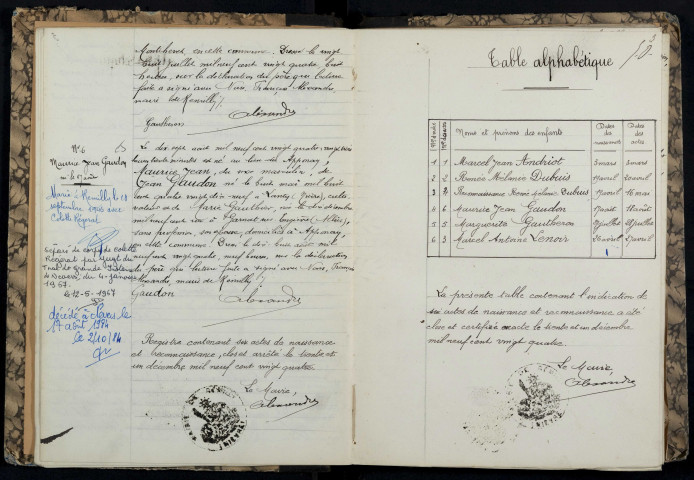 Montcheret, en cette commune. Dressé le vingt
huit juillet mil neuf cent vingt quatre, huit
heures, sur la déclaration du père qui lecture
faite a signé avec Nous, François Alexandre,
maire de Remilly /.
Gautheron Alexandre
N° 6
Maurice Jean Gaudon
Marié à Remilly le 18
septembre avec
Colette Régrat
de corps de Colette
Régrat par jugt du
Trib. de Grande Instance
de Nevers, du 4 janvier
1967.
le 12-5-1967
décédé à le
17 août 1984
le 2/10/84
Le dix sept août mil neuf cent vingt quatre,
minutes est né au lieu dit Apponay
Maurice Jean, du sexe masculin, de
Jean Gaudon né le huit mai mil huit
cent quatre vingt dix neuf à Lanty (Nièvre), cultivateur
et de Marie Gauthier, née le dix décembre
mil neuf cent à Garnat sur Engièvre (Allier),
sans profession, son épouse, domiciliés à Apponay,
en cette commune. Dressé le dix huit août mil
neuf cent vingt quatre, neuf heures, sur la déclaration
du père qui lecture faite a signé avec Nous, François
Alexandre, maire de Remilly /.
Gaudon Alexandre
Registre contenant six actes de naissance
et reconnaissance, clos et arrêté le trente et
un décembre mil neuf cent vingt quatre.
Le Maire,
Alexandre
Table alphabétique
Noms et prénoms des enfants Dates des naissances Dates des actes
1 1 Marcel Jean Andriot 3 mars 3 mars
2 2 Renée Mélonie Dubuis 17 avril 20 avril
3 2 Reconnaissance Renée Mélonie Dubuis 17 avril 16 mai
4 6 Maurice Jean Gaudon 17 août 18 août
5 5 Marguerite Gautheron 27 juillet 28 juillet
6 3 Marcel Antoine Lenoir 26 avril 27 avril
La présente table contenant l'indication de
six actes de naissance et reconnaissance a été
close et certifiée exacte le trente et un décembre
mil neuf cent vingt quatre.
Le Maire,
Alexandre